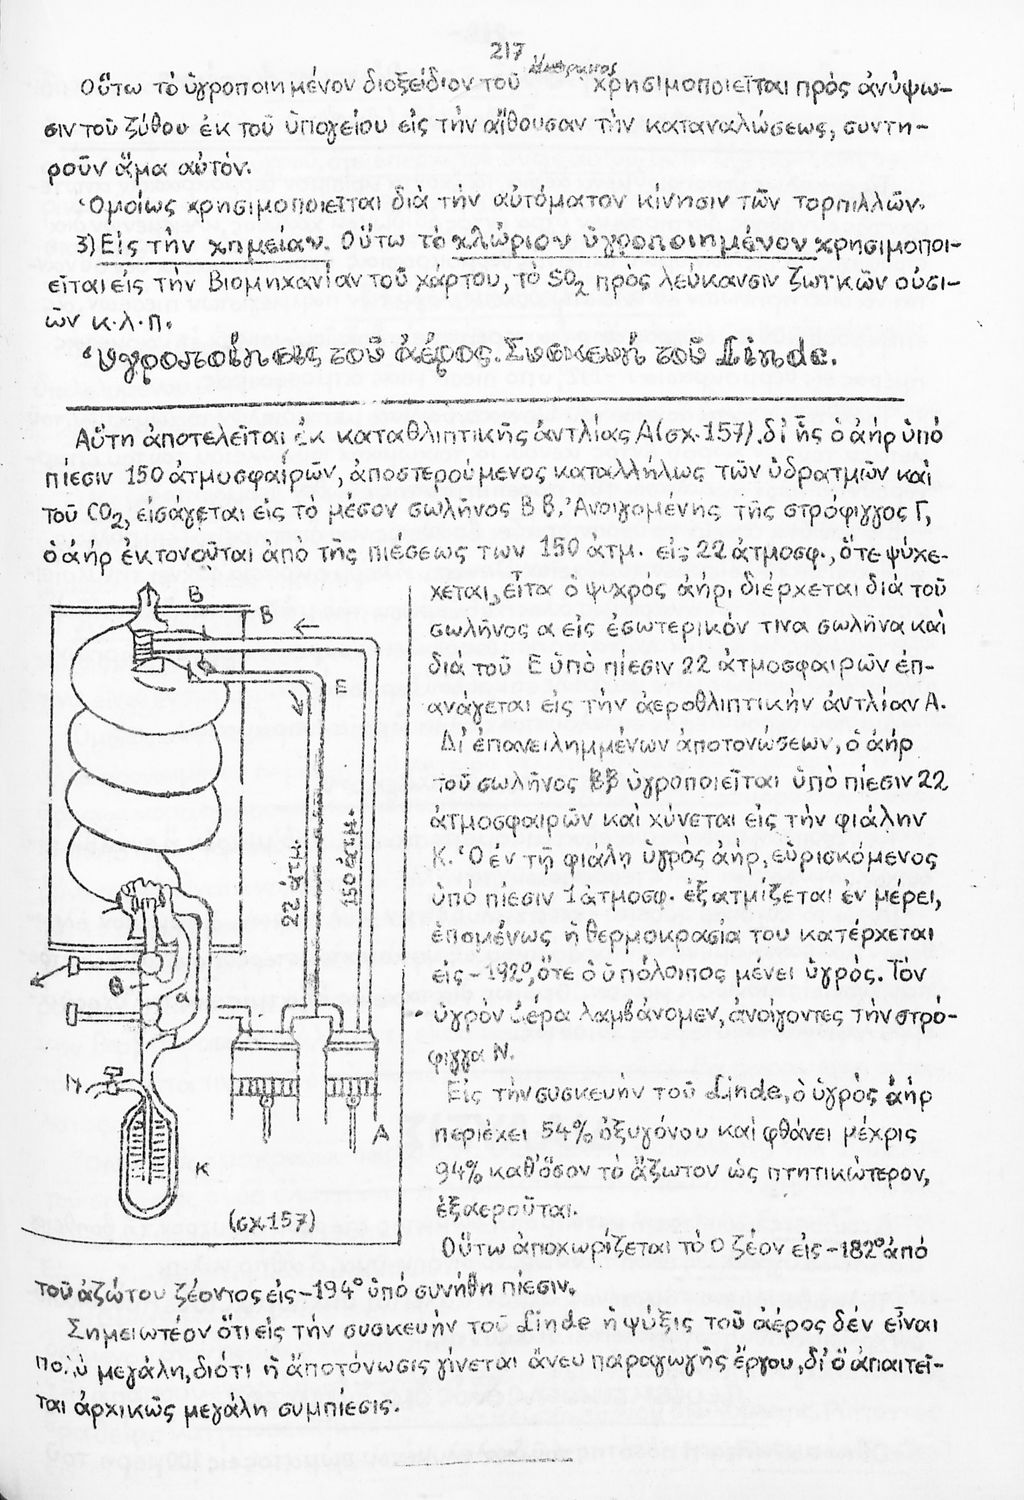 217
ἄνθρακος
Οὕτω τό ὑγροποιημένον διοξείδιον τοῦ χρησιμοποιεῖται πρός ἀνύψω-
σιν τοῦ ζύθου ἐκ τοῦ ὑπογείου εἰς τήν αἴθουσαν τήν καταναλώσεως, συντη-
ροῦν ἅμα αὐτόν.
Ὁμοίως χρησιμοποιεῖται διά τήν αὐτόματον κίνησιν τῶν τορπιλλῶν.
3) Εἰς τήν χημείαν. Οὕτω τό χλώριον ὑγροποιημένον χρησιμοποι-
εῖται εἰς τήν Βιομηχανίαν τοῦ χάρτου, τό SO2 πρός λεύκανσιν ζωικῶν οὐσι-
ῶν κ.λ.π.
Ὑγροποίησις τοῦ ἀέρος. Συσκευή τοῦ Linde.
Αὕτη ἀποτελεῖται ἐκ καταθλιπτικῆς ἀντλίας Α (σχ. 157), δι' ἧς ὁ ἀήρ ὑπό
πίεσιν 150 ἀτμοσφαιρῶν, ἀποστερούμενος καταλλήλως τῶν ὑδρατμῶν καί
τοῦ CO2, εἰσάγεται εἰς τό μέσον σωλῆνος Β β. Ἀνοιγομένης τῆς στρόφιγγος Γ,
ὁ ἀήρ ἐκτονοῦται ἀπό τῆς πιέσεως των 150 ἀτμ. εἰς 22 ἀτμοσφ., ὅτε ψύχε-
χεται, εἶτα ὁ ψυχρός ἀήρ, διέρχεται διά τοῦ
σωλῆνος α εἰς ἐσωτερικόν τινα σωλῆνα καί
διά τοῦ Ε ὑπό πίεσιν 22 ἀτμοσφαιρῶν ἐπ-
ανάγεται εἰς τήν ἀεροθλιπτικήν ἀντλίαν Α.
Δι' ἐπανειλημμένων ἀποτονώσεων, ὁ ἀήρ
τοῦ σωλῆνος Ββ ὑγροποιεῖται ὑπό πίεσιν 22
ἀτμοσφαιρῶν καί χύνεται εἰς τήν φιάλην
Κ. Ὁ ἐν τῇ φιάλῃ ὑγρός ἀήρ, εὑρισκόμενος
ὑπό πίεσιν 1 ἀτμοσφ. ἐξατμίζεται ἐν μέρει,
ἑπομένως ἡ θερμοκρασία του κατέρχεται
εἰς -192°, ὅτε ὁ ὑπόλοιπος μένει ὑγρός. Τόν
ὑγρόν ἀέρα λαμβάνομεν, ἀνοίγοντες τήν στρό-
φιγγα Ν.
Εἰς τήν συσκευήν τοῦ Linde, ὁ ὑγρός ἀήρ
περιέχει 54% ὀξυγόνου καί φθάνει μέχρις
94% καθ' ὅσον τό ἄζωτον ὡς πτητικώτερον,
ἐξαεροῦται.
Οὕτω ἀποχωρίζεται τό Ο ζέον εἰς -182° ἀπό
τοῦ ἀζώτου ζέοντος εἰς -194° ὑπό συνήθη πίεσιν.
Σημειωτέον ὅτι εἰς τήν συσκευήν τοῦ Linde ἡ ψύξις τοῦ ἀέρος δέν εἶναι
πολύ μεγάλη, διότι ἡ ἀποτόνωσις γίνεται ἄνευ παραγωγῆς ἔργου, δι' ὅ ἀπαιτεῖ-
ται ἀρχικῶς μεγάλη συμπίεσις.
Β
Β
Ε
22 ἀτμ.
150 ἀτμ.
θ
α
Ν
Α
Κ
(σχ. 157)